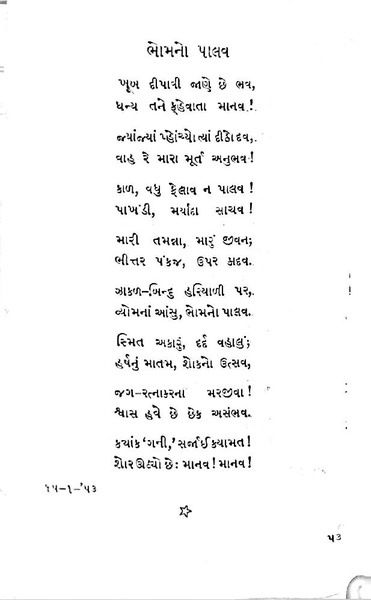 ભોમનો પાલવ
ખૂબ દીપાવી જાણે છે ભવ,
ધન્ય તને કહેવાતા માનવ!
જ્યાંજ્યાં પ્હોંચ્યો ત્યાં દીઠો દવ,
વાહ રે મારા મૂર્ત અનુભવ!
કાળ, વધુ ફેલાવ ન પાલવ!
પાખંડી, મર્યાદા સાચવ!
મારી તમન્ના, મારું જીવન;
ભીતર પંકજ, ઉપર કાદવ.
ઝાકળ-બિન્દુ હરિયાળી પર,
વ્યોમનાં આંસુ, ભોમનો પાલવ.
સ્મિત અકારું, દર્દ વહાલું;
હર્ષનું માતમ, શોકનો ઉત્સવ,
જગ-રત્નાકરના મરજીવા!
શ્વાસ હવે છે છેક અસંભવ.
ક્યાંક 'ગની,' સર્જાઈ ક્યામત!
શોર ઊઠ્યો છે: માનવ! માનવ!
૧૫-૧-'૫૩
૫૩